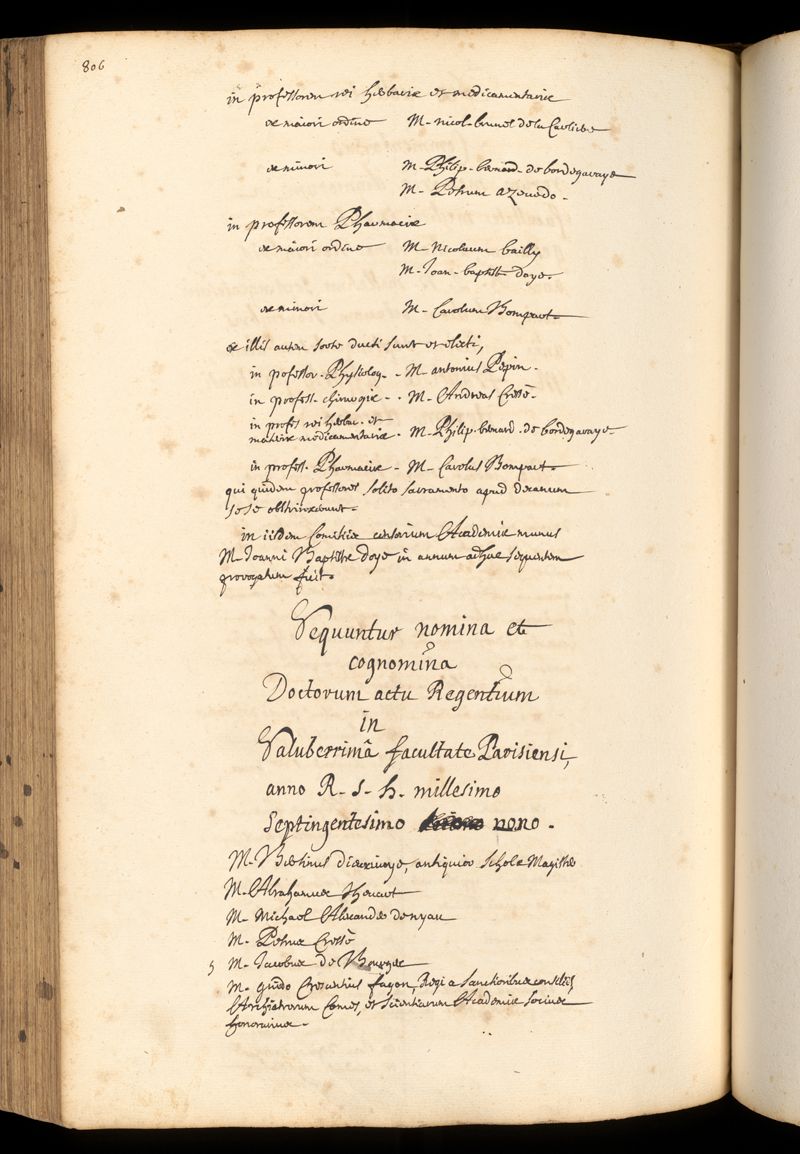 806
in professorem rei herbariæ et medicamentariæ
ex maiori ordine M. nicol. brunel de la Carliere
ex minori M. Philip. bernard. de bordegaraye
M. Petrum azevedo.
in professorem Pharmaciæ
ex maiori ordine M. Nicolaum bailly
M. Joan. baptist. doye.
ex minori M. Carolum Bompart.
ex illis autem sorte ducti sunt et electi,
in professor. Physiolog. M. antonius Pepin.
in profess. chirurgiæ. M. Andreas Cressé.
in profess. rei herbar. et
materiæ medicamentariæ. M. Philip. bernard. de bordegaraye.
in profess. Pharmaciæ. M. Carolus Bompart.
qui quidem professores solito sacramento apud decanum
sese obstrinxerunt.
in iisdem Comitiis censorium Academiæ munus
M. Joanni Baptistæ Doye in annum adhuc sequentem
prorogatum fuit.
Sequuntur nomina et
cognomina
Doctorum actu Regentium
in
Saluberrimâ facultate Parisiensi,
anno R. S. h. millesimo
Septingentesimo nono.
M. Bertinus dieuxivoye, antiquior scholæ Magister
M. Abrahamus Thevart
M. Michael Alexander denyau
M. Petrus Cressé
5 M. Jacobus de Bourges
M. guido Crescentius fagon, Regi a Sanctioribus consiliis,
Archiatrorum Comes, et Scientiarum Academiæ socius
honorarius.